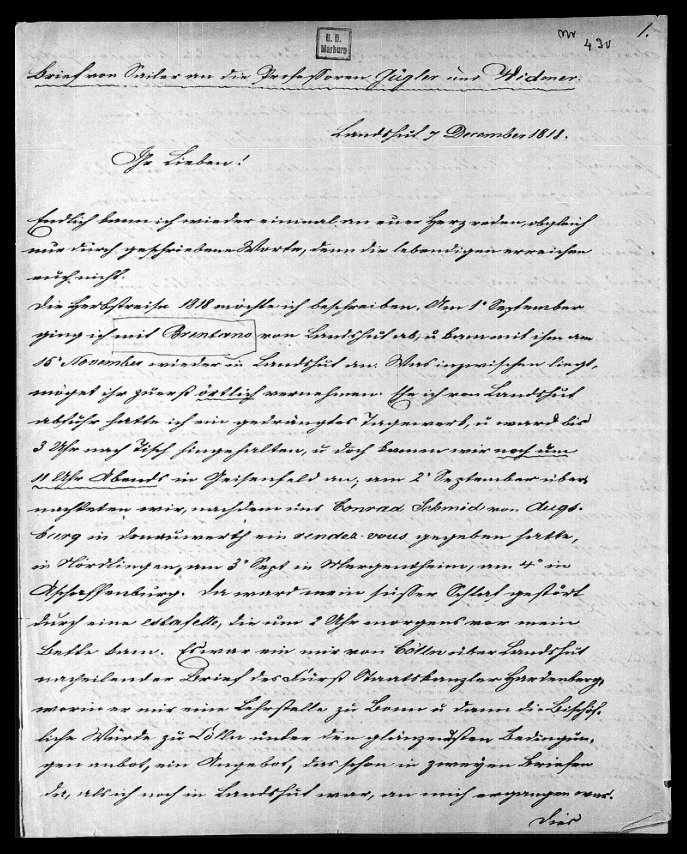 U. B.
Marburg
Mr
430
1.
Brief von Sailer an die Professoren Gügler und Widmer.
Landshut 7 December 1818.
Ihr Lieben!
Endlich kann ich wieder einmal an euer Herz reden, obgleich
nur durch geschriebene Worte, denn die lebendigen erreichen
euch nicht.
Die Herbstreise 1818 möchte ich beschreiben. Am 1t September
ging ich mit Brentano von Landshut ab, u kam mit ihm am
15t November wieder in Landshut an. Was inzwischen liegt,
möget ihr zuerst örtlich vernehmen. Ehe ich von Landshut
abfuhr hatte ich ein gedrängtes Tagewerk, u ward bis
3 Uhr nach Tisch hingehalten, u doch kamen wir noch um
11 Uhr Abends in Geisenfeld an, am 2t September über-
nachteten wir, nachdem uns Conrad Schmid von Augs-
burg in Donauwerth ein rendez-vous gegeben hatte,
in Nördlingen, am 3t Sept in Mergentheim, am 4t in
Aschaffenburg. Da ward mein süsser Schlaf gestört
durch eine estafette, die um 2 Uhr morgens vor mein
Bette kam. Es war ein mir von Cölln über Landshut
nacheilender Brief des Fürst Staatskanzler Hardenberg,
worin er mir eine Lehrstelle zu Bonn u dann die Bischöf-
liche Würde zu Cölln unter den glänzendsten Bedingun-
gen anbot, ein Angebot, das schon in zweyen Briefen
da, als ich noch in Landshut war, an mich ergangen war.
Dies